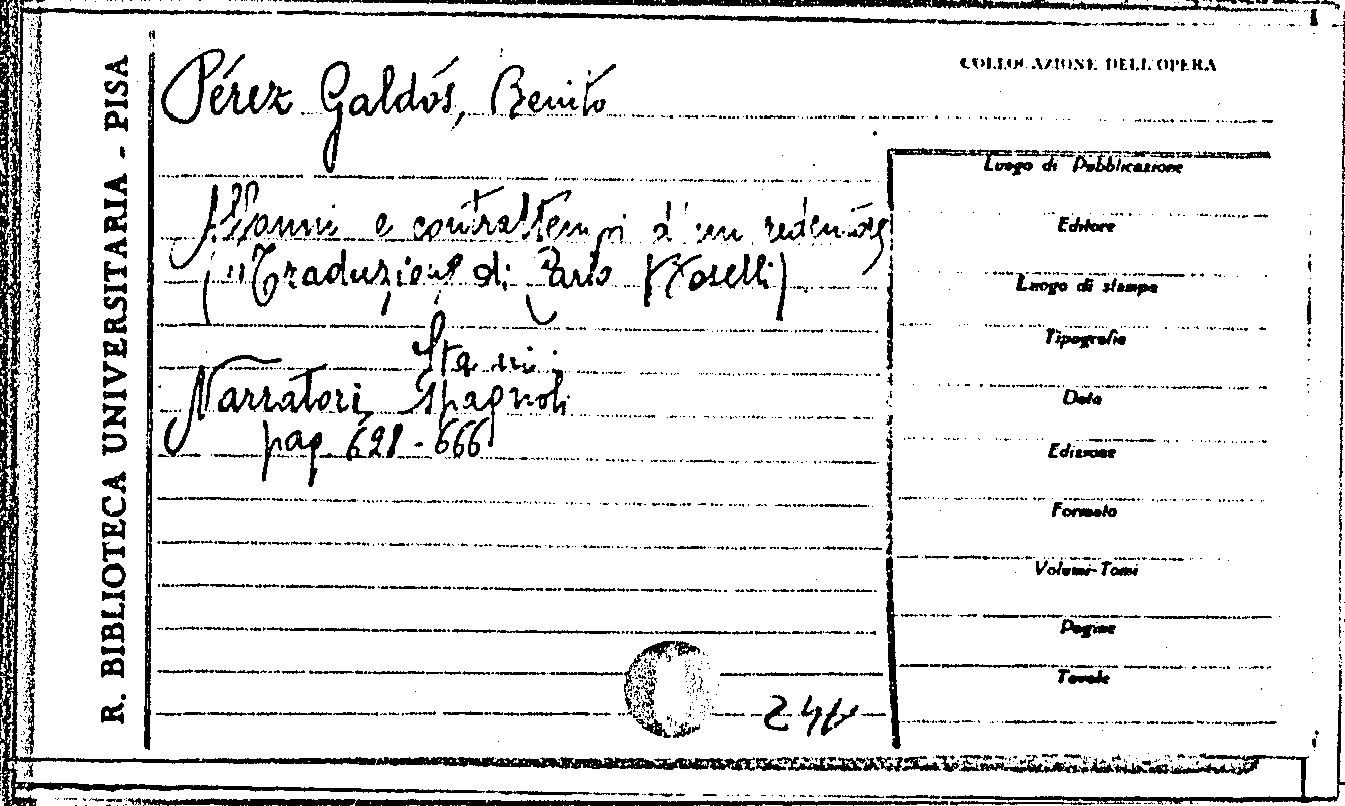 R. BIBLIOTECA UNIVERSITARIA - PISA
Pérez Galdós, Benito
COLLOCAZIONE DELL'OPERA
Affanni e contrattempi d'un redentore
(Traduzione di Carlo Boselli)
Sta in:
Narratori Spagnoli
pag. 628-666
Luogo di Pubblicazione
Editore
Luogo di stampa
Tipografia
Data
Edizione
Formato
Volumi-Tomi
Pagine
Tavole